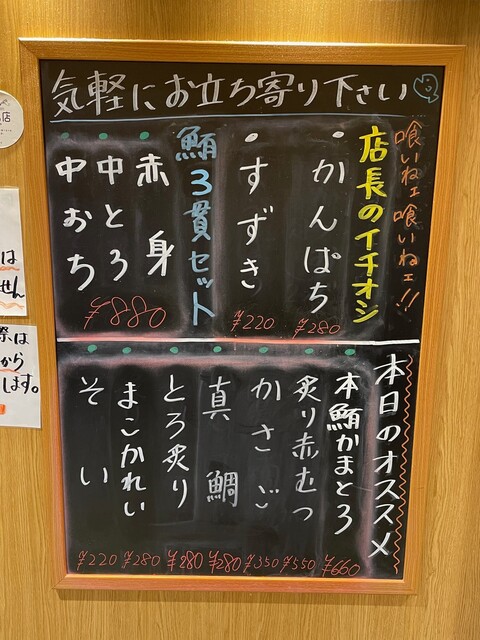 気軽にお立ち寄り下さい
喰いねェ喰いねェ!!
店長のイチオシ
・かんぱち
¥280
・すずき
¥220
鮪3貫セット
・赤身
・中とろ
・中おち
¥880
本日のオススメ
・本鮪かまとろ
¥660
・炙り赤むつ
¥550
・かさご
¥350
・真鯛
¥280
・とろ炙り
¥280
・まこかれい
¥280
・そい
¥220
店
は
せん
際は
から
します。